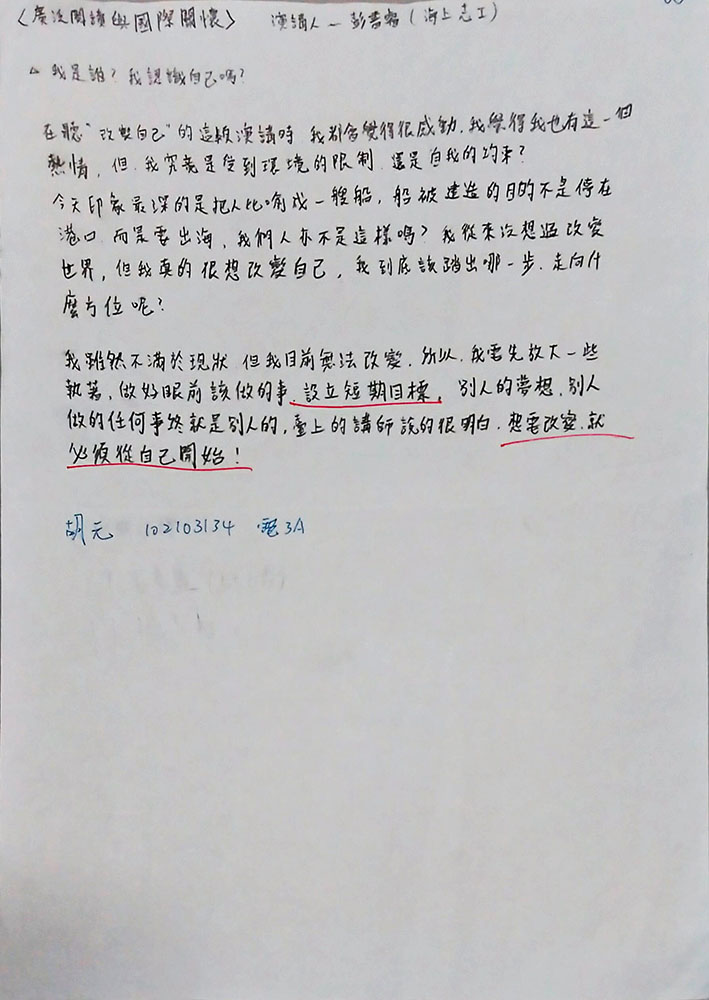 〈廣泛閱讀與國際關懷〉 演講人－彭書睿(海上志工)
△我是誰? 我認識自己嗎?
在聽"改變自己"的這類演講時 我都會覺得很感動.我覺得我也有這一個
熱情, 但.我究竟是受到環境的限制.還是自我的約束?
今天印象最深的是把人比喻成一艘船, 船被建造的目的不是停在
港口.而是要出海, 我們人亦不是這樣嗎? 我從來沒想過改變
世界, 但我真的很想改變自己, 我到底該踏出哪一步.走向什
麼方位呢?
我雖然不滿於現狀.但我目前無法改變.所以.我需先放下一些
執著, 做好眼前該做的事.設立短期目標, 別人的夢想.別人
做的任何事終就是別人的, 臺上的講師說的很明白.想要改變.就
必須從自己開始!
胡元 102103134 電3A